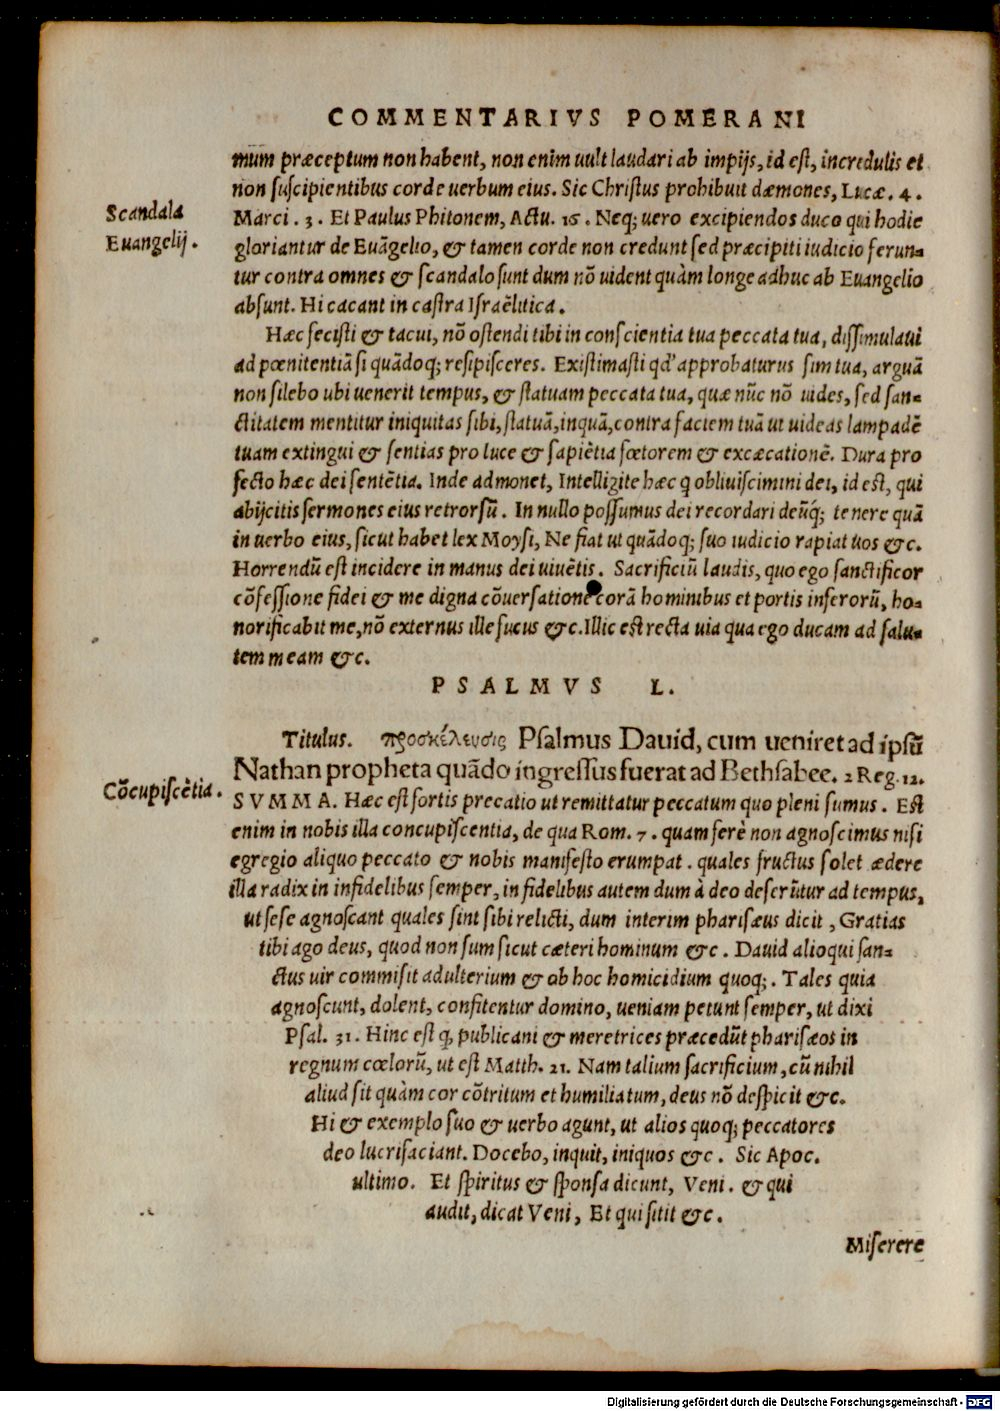 COMMENTARIVS POMERANI
mum præceptum non habent, non enim uult laudari ab impijs, id est, incredulis et
non suscipientibus corde uerbum eius. Sic Christus prohibuit dæmones, Lucæ. 4.
Scandala
Marci. 3. Et Paulus Phitonem, Actu. 16. Neq; uero excipiendos duco qui hodie
Euangelij.
gloriantur de Euãgelio, & tamen corde non credunt sed præcipiti iudicio ferun=
tur contra omnes & scandalo sunt dum nõ uident quàm longe adhuc ab Euangelio
absunt. Hi cacant in castra Israëlitica.
Hæc fecisti & tacui, nõ ostendi tibi in conscientia tua peccata tua, dissimulaui
ad pœnitentiã si quãdoq; resipisceres. Existimasti qd' approbaturus sim tua, arguã
non silebo ubi uenerit tempus, & statuam peccata tua, quæ nũc nõ uides, sed san=
ctitatem mentitur iniquitas sibi, statuã, inquã, contra faciem tuã ut uideas lampadẽ
tuam extingui & sentias pro luce & sapiẽtia fœtorem & excæcationẽ. Dura pro
fecto hæc dei sentẽtia. Inde admonet, Intelligite hæc q obliuiscimini dei, id est, qui
abijcitis sermones eius retrorsũ. In nullo possumus dei recordari deũq́; tenere quã
in uerbo eius, sicut habet lex Moysi, Ne fiat ut quãdoq; suo iudicio rapiat uos &c.
Horrendũ est incidere in manus dei uiuẽtis. Sacrificiũ laudis, quo ego sanctificor
cõfessione fidei & me digna cõuersatione corã hominibus et portis inferorũ, ho=
norificabit me, nõ externus ille fucus &c. Illic est recta uia qua ego ducam ad salu=
tem meam &c.
PSALMVS L.
Titulus. προσκέλευσις Psalmus Dauid, cum ueniret ad ipsũ
Nathan propheta quãdo ingressus fuerat ad Bethsabee. 2 Reg. 12.
Cõcupiscẽtia.
SVMMA. Hæc est fortis precatio ut remittatur peccatum quo pleni sumus. Est
enim in nobis illa concupiscentia, de qua Rom. 7. quam ferè non agnoscimus nisi
egregio aliquo peccato & nobis manifesto erumpat. quales fructus solet ædere
illa radix in infidelibus semper, in fidelibus autem dum à deo deserũtur ad tempus,
ut sese agnoscant quales sint sibi relicti, dum interim pharisæus dicit, Gratias
tibi ago deus, quod non sum sicut cæteri hominum &c. Dauid alioqui san=
ctus uir commisit adulterium & ob hoc homicidium quoq;. Tales quia
agnoscunt, dolent, confitentur domino, ueniam petunt semper, ut dixi
Psal. 31. Hinc est q, publicani & meretrices præcedũt pharisæos in
regnum cœlorũ, ut est Matth. 21. Nam talium sacrificium, cũ nihil
aliud sit quàm cor cõtritum et humiliatum, deus nõ despicit &c.
Hi & exemplo suo & uerbo agunt, ut alios quoq; peccatores
deo lucrifaciant. Docebo, inquit, iniquos &c. Sic Apoc.
ultimo. Et spiritus & sponsa dicunt, Veni. & qui
audit, dicat Veni, Et qui sitit &c.
Miserere
Digitalisierung gefördert durch die Deutsche Forschungsgemeinschaft - DFG